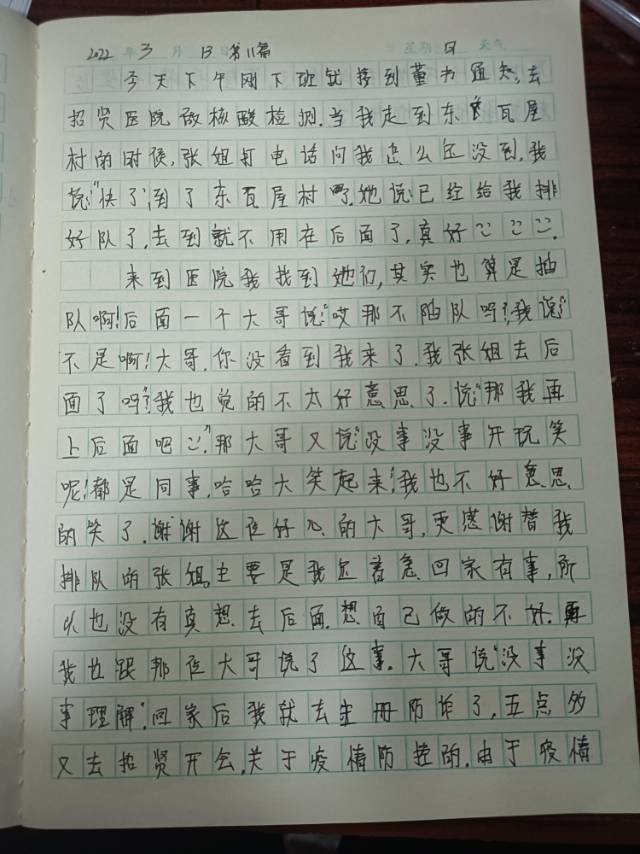 2022年3月13日第11篇 星期日 天气
今天下午刚下班就接到董书通知,去
招贤医院做核酸检测.当我走到东瓦屋
村的时侯,张姐打电话问我怎么还没到.我
说:"快了,到了东瓦屋村呀.她说:已经给我排
好队了,去到就不用在后面了,真好
来到医院我找到她们,其实也算是抽
队啊!后面一个大哥说:"哎那不陷队吗?,我说:"
不是啊!大哥.你没看到我来了.我张姐去后
面了吗?"我也觉的不太好意思了.说:"那我再
上后面吧."那大哥又说:"没事没事开玩笑
呢!都是同事,哈哈大笑起来!"我也不好意思
的笑了.谢谢这位好心的大哥,更感谢替我
排队的张姐,主要是我还着急回家有事,所
以也没有真想去后面.想自己做的不好.再
我也跟那位大哥说了这事.大哥说:"没事没
事理解".回家后我就去注册防诈了,五点多
又去招贤开会,关于疫情防控的.由于疫情